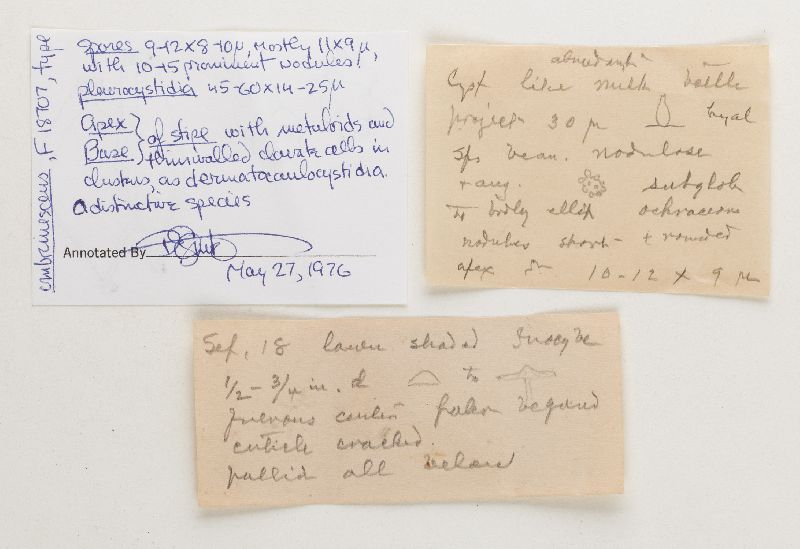 Spores 9-12 x 8-10µ, mostly 11 x 9µ,
with 10-15 prominent nodules!
pleurocystidia 45-60 x 14-25µ
Apex } of stipe with metuloids and
Base } thinwalled clavate cells in
clusters, as dermatocaulocystidia.
A distinctive species
Annotated By
May 27, 1976
umbrinescens, F 18707, type
abundant
Cyst like milk bottle
project 30 µ hyal
Sps bean. nodulose
+ ang. subglob
to bdly ellip ochraceous
nodules short + rounded
apex 10-12 x 9 µ
Sep. 18 lawn shaded Inocybe
1/2 - 3/4 in. d to
fuscous center paler beyond
cuticle cracked.
pallid all below